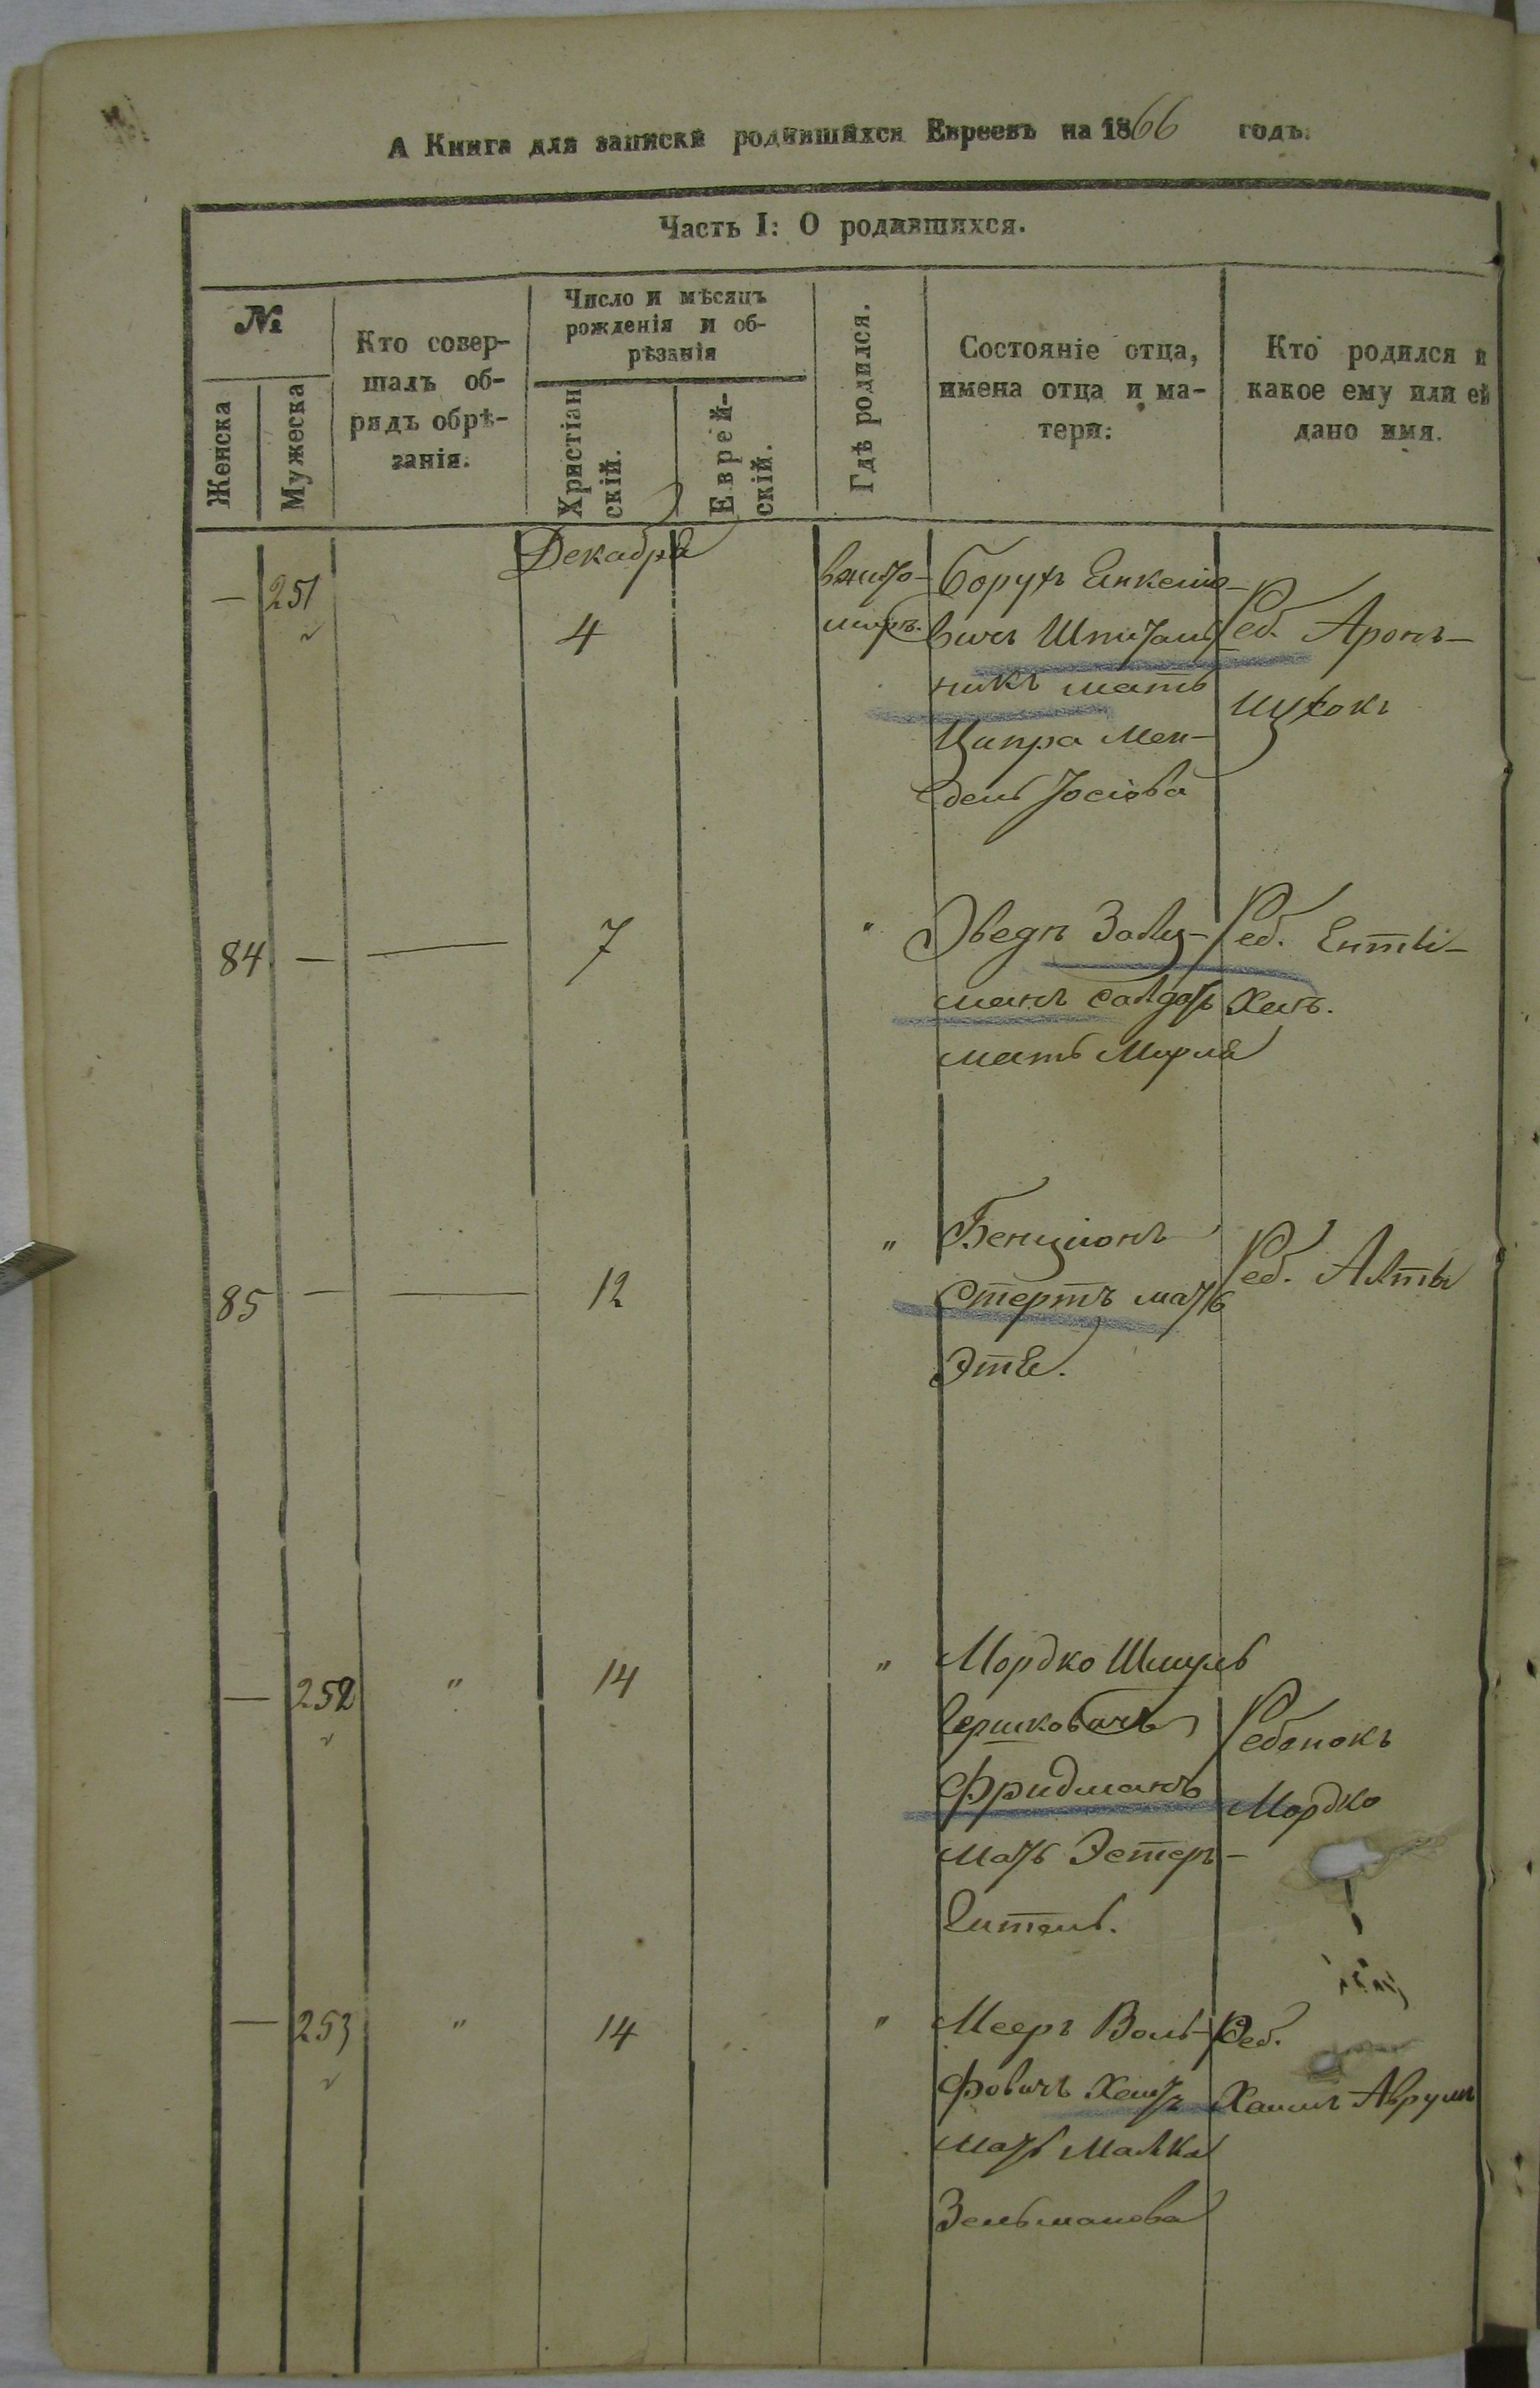 А Книга для записки родившихся Евреевъ на 1866 годъ.
Часть I: О родившихся.
№
Женска
Мужеска
Кто совер-
шалъ об-
рядъ обрѣ-
занія.
Число и мѣсяцъ
рожденія и об-
рѣзанія
Христіан
скій.
Еврей-
скій.
Гдѣ родился.
Состояніе отца,
имена отца и ма-
тери:
Кто родился и
какое ему или ей
дано имя.
Декабря
— 251
4
вжито-
миръ.
Борухъ Енкеліо-
вичъ Шпиталь-
никъ мать
Ципра Мен-
дель Іосіова
Реб. Аронъ-
Ицхокъ
84 — —
7
"
Залц-
манъ салдатъ
мать Мирля
Реб. Енты-
Хая.
85 — —
12
"
Бенціонъ
Стертъ мать
Этя.
Реб. Алты
— 252 "
14
"
Мордко Шмуль
Гершковичъ
Фридманъ
мать Эстеръ-
Гитель.
Ребенокъ
Мордко
— 253 "
14
"
Мееръ Воль-
фовичъ
мать Малка
Зельманова
Реб.
Хаимъ Аврумъ